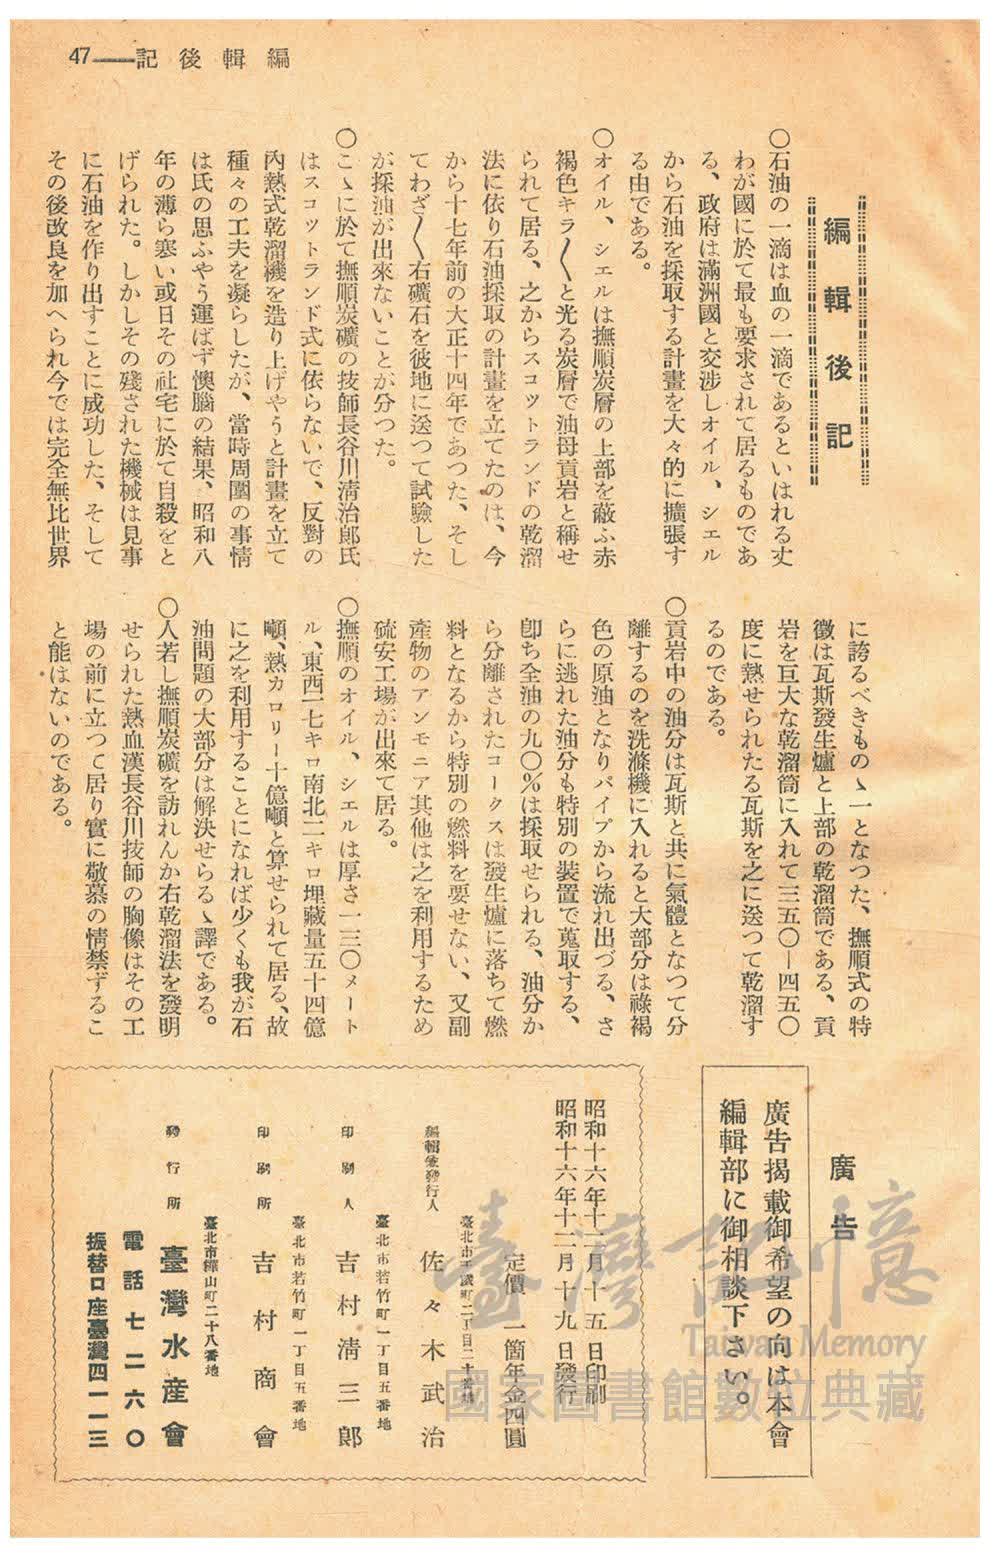 47——記後輯編
編輯後記
〇石油の一滴は血の一滴であるといはれる丈
わが國に於て最も要求されて居るものであ
る、政府は滿洲國と交渉しオイル、シエル
から石油を採取する計畫を大々的に擴張す
る由である。
〇オイル、シエルは撫順炭層の上部を蔽ふ赤
褐色キラ〳〵と光る炭層で油母貢岩と稱せ
られて居る、之からスコツトランドの乾溜
法に依り石油採取の計畫を立てたのは、今
から十七年前の大正十四年であつた、そし
てわざ〳〵右礦石を彼地に送つて試驗した
が採油が出來ないことが分つた。
〇こゝに於て撫順炭礦の技師長谷川淸治郎氏
はスコツトランド式に依らないで、反對の
內熱式乾溜機を造り上げやうと計畫を立て
種々の工夫を凝らしたが、當時周圍の事情
は氏の思ふやう運ばず懊腦の結果、昭和八
年の薄ら寒い或日その社宅に於て自殺をと
げられた。しかしその殘された機械は見事
に石油を作り出すことに成功した、そして
その後改良を加へられ今では完全無比世界
に誇るべきものゝ一となつた、撫順式の特
徵は瓦斯發生爐と上部の乾溜筒である、貢
岩を巨大な乾溜筒に入れて三五〇—四五〇
度に熱せられたる瓦斯を之に送つて乾溜す
るのである。
〇貢岩中の油分は瓦斯と共に氣體となつて分
離するのを洗滌機に入れると大部分は祿褐
色の原油となりパイプから流れ出づる、さ
らに逃れた油分も特別の裝置で蒐取する、
卽ち全油の九〇%は採取せられる、油分か
ら分離されたコークスは發生爐に落ちて燃
料となるから特別の燃料を要せない、又副
產物のアンモニア其他は之を利用するため
硫安工場が出來て居る。
〇撫順のオイル、シエルは厚さ一三〇メート
ル、東西一七キロ南北二キロ埋藏量五十四億
噸、熱カロリー十億噸と算せられて居る、故
に之を利用することになれば少くも我が石
油問題の大部分は解決せらるゝ譯である。
〇人若し撫順炭礦を訪れんか右乾溜法を發明
せられた熱血漢長谷川技師の胸像はその工
場の前に立つて居り實に敬慕の情禁ずるこ
と能はないのである。
廣告
廣吿揭載御希望の向は本會
編輯部に御相談下さい。
昭和十六年十二月十五日印刷
昭和十六年十二月十九日發行
定價 一箇年金四圓
臺北市 町二丁目二十番地
編輯兼發行人 佐々木武治
臺北市若竹町一丁目五番地
印刷人 吉村淸三郎
臺北市若竹町一丁目五番地
印刷所 吉村商會
臺北市樺山町二十八番地
發行所 臺灣水產會
電話七二六〇
振替口座臺灣四一一三
臺灣記憶
Taiwan Memory
國家圖書館數位典藏